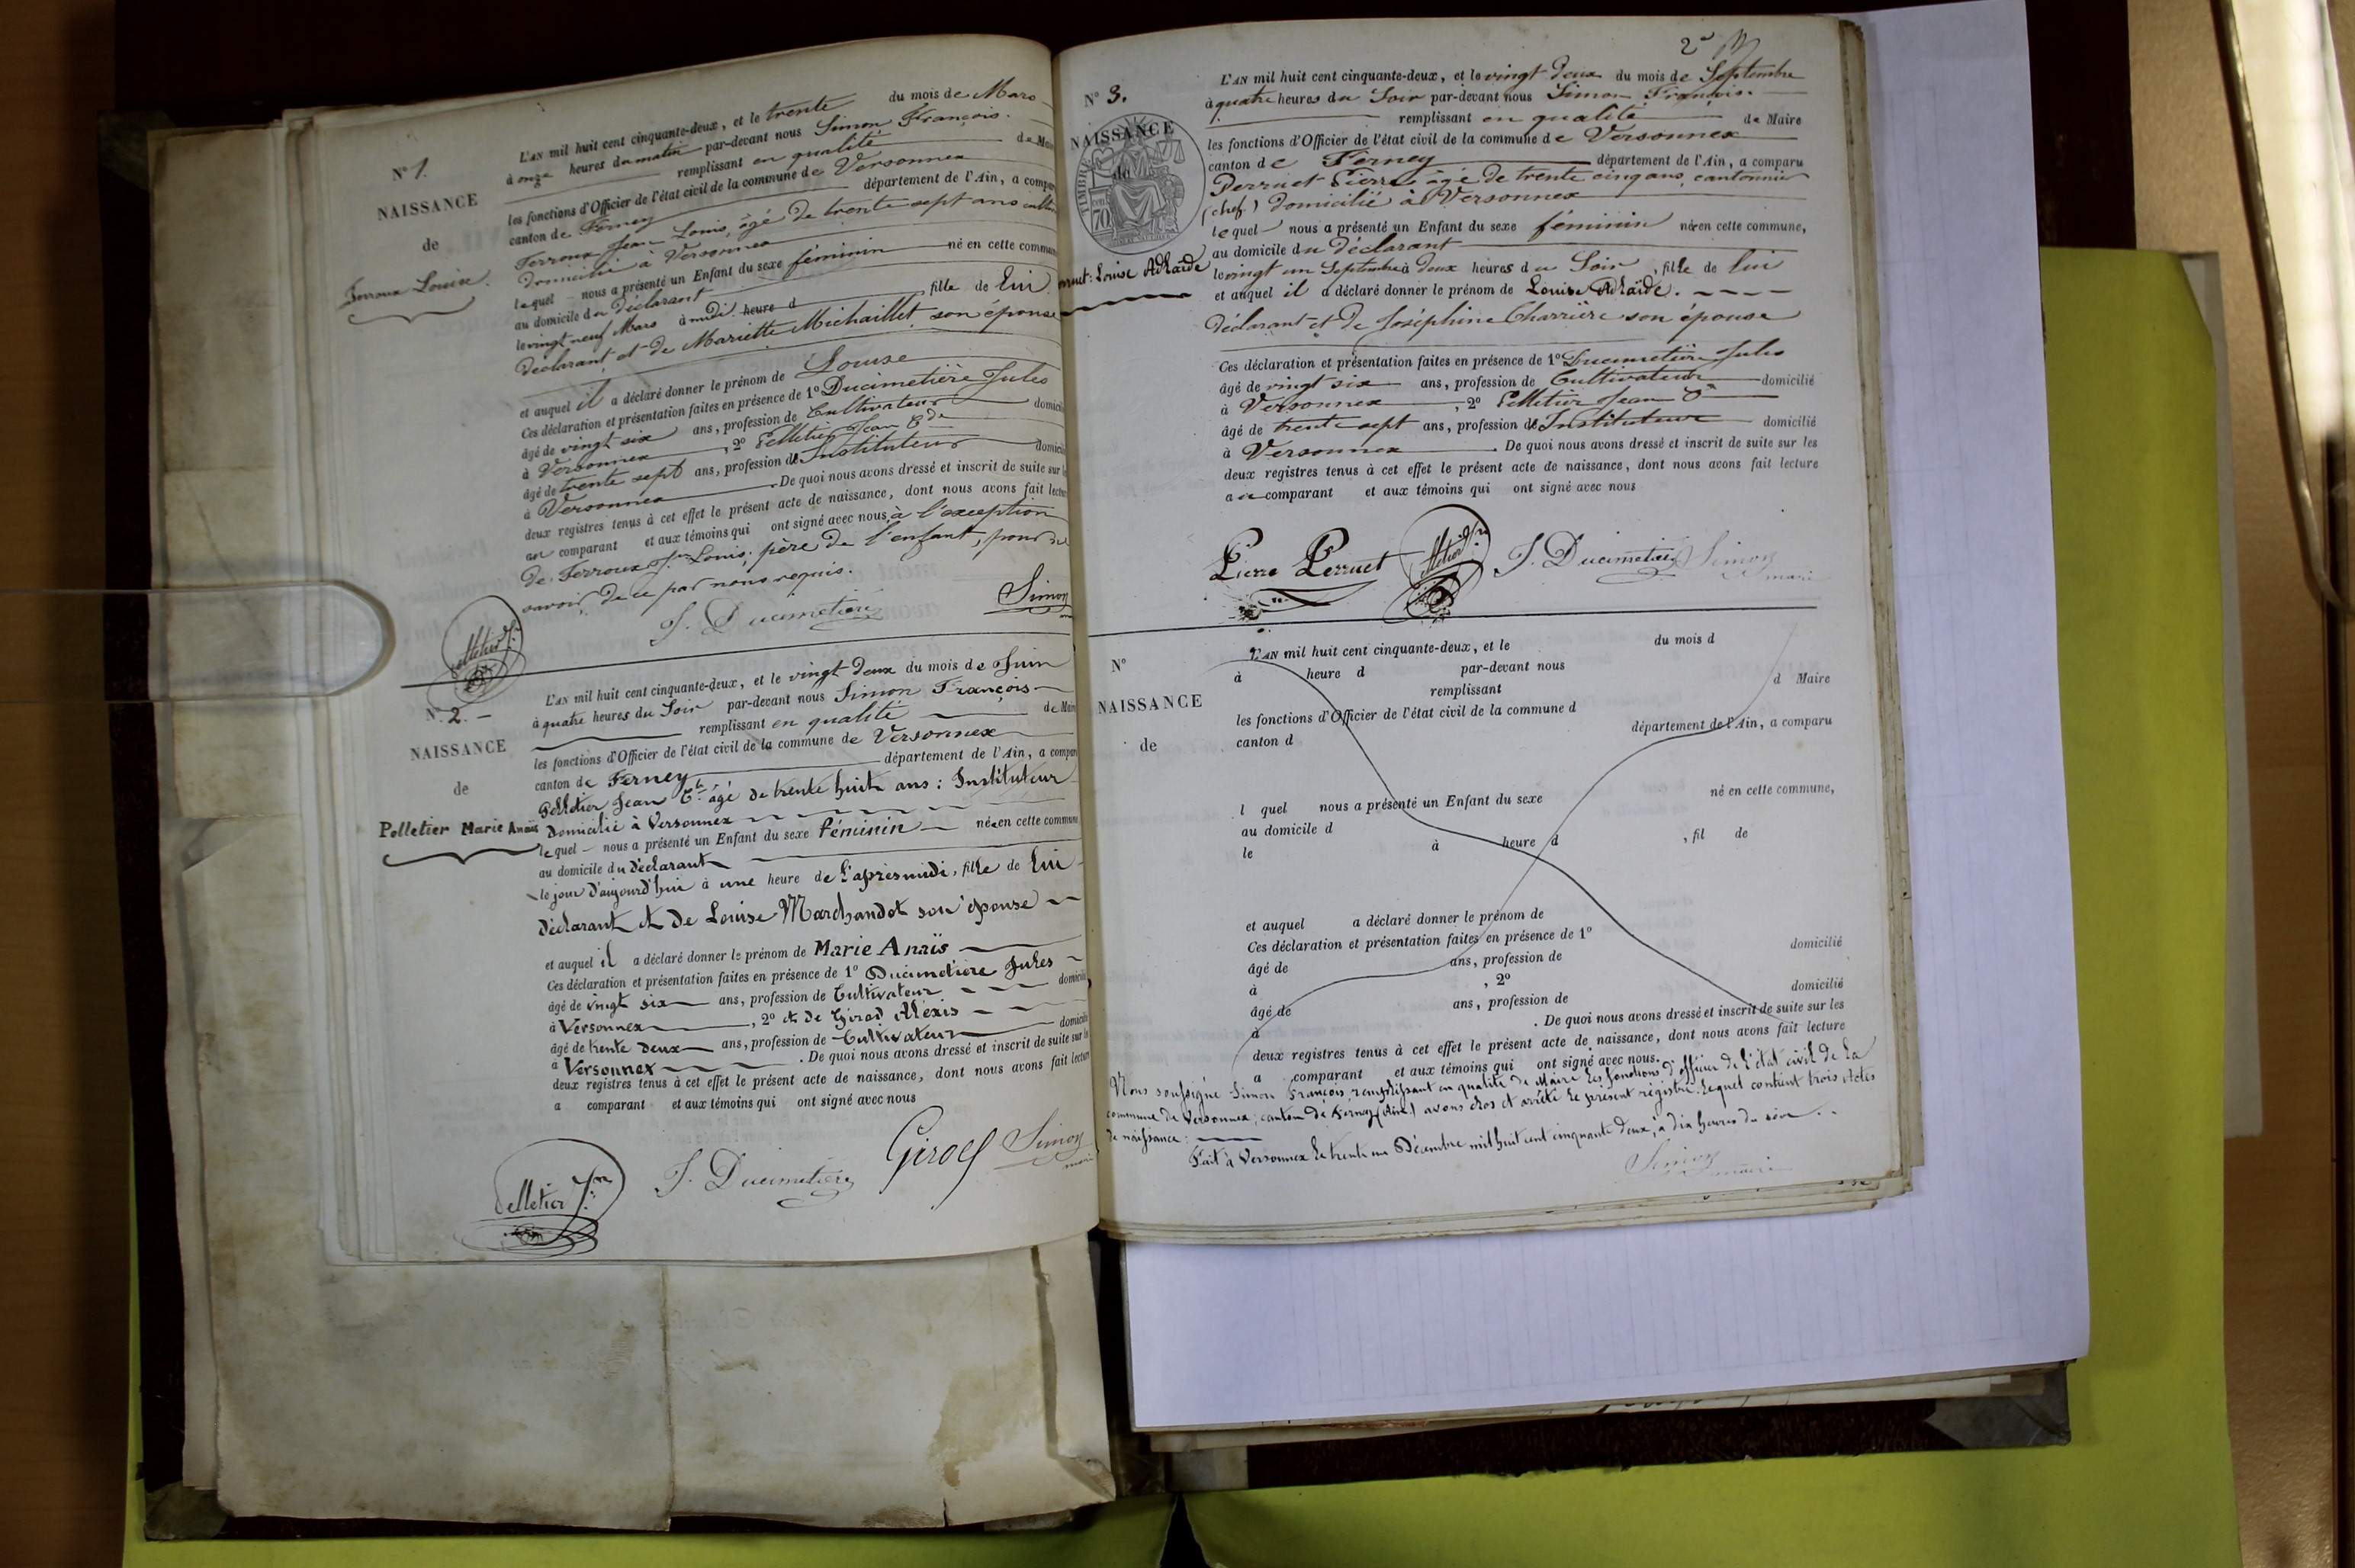 N° 1.
NAISSANCE
de
Ferroux Louise.
L'AN mil huit cent cinquante-deux, et le trente du mois de Mars
à onze heures du matin par-devant nous Simon François.
remplissant en qualité de Maire
les fonctions d'Officier de l'état civil de la commune de Versonnex
canton de Ferney département de l'Ain, a comparu
Ferroux Jean Louis, âgé de trente sept ans
domicilié à Versonnex
lequel nous a présenté un Enfant du sexe féminin né en cette commune
au domicile du déclarant
le vingt neuf Mars à midi heure d fille de lui
déclarant et de Mariette Michaillet son épouse
et auquel il a déclaré donner le prénom de Louise
Ces déclaration et présentation faites en présence de 1° Ducimetière Jules
âgé de vingt six ans, profession de Cultivateur domicilié
à Versonnex, 2° Pelletier Jean Cde
âgé de trente sept ans, profession d'Instituteur domicilié
à Versonnex. De quoi nous avons dressé et inscrit de suite sur les
deux registres tenus à cet effet le présent acte de naissance, dont nous avons fait lecture
au comparant et aux témoins qui ont signé avec nous à l'exception
de Ferroux Jn Louis, père de l'enfant, pour ne
savoir de ce par nous requis.
Pelletier J. Ducimetière Simon
N° 2. —
NAISSANCE
de
Pelletier Marie Anaïs
L'AN mil huit cent cinquante-deux, et le vingt deux du mois de Juin
à quatre heures du Soir par-devant nous Simon François
remplissant en qualité de Maire
les fonctions d'Officier de l'état civil de la commune de Versonnex
canton de Ferney département de l'Ain, a comparu
Pelletier Jean Cde âgé de trente huit ans : Instituteur
domicilié à Versonnex
lequel nous a présenté un Enfant du sexe féminin née en cette commune
au domicile du déclarant
le jour d'aujourd'hui à une heure de l'après midi, fille de lui
déclarant et de Louise Marchandot son épouse
et auquel il a déclaré donner le prénom de Marie Anaïs
Ces déclaration et présentation faites en présence de 1° Ducimetière Jules
âgé de vingt six ans, profession de Cultivateur domicilié
à Versonnex, 2° et de Girod Alexis
âgé de trente deux ans, profession de Cultivateur domicilié
à Versonnex. De quoi nous avons dressé et inscrit de suite sur les
deux registres tenus à cet effet le présent acte de naissance, dont nous avons fait lecture
a comparant et aux témoins qui ont signé avec nous
Pelletier J. Ducimetière Girod Simon
maire
2d
N° 3.
NAISSANCE
de
TIMBRE
70
Perruet Louise Adlaïde
L'AN mil huit cent cinquante-deux, et le vingt deux du mois de Septembre
à quatre heures du Soir par-devant nous Simon François.
remplissant en qualité de Maire
les fonctions d'Officier de l'état civil de la commune de Versonnex
canton de Ferney département de l'Ain, a comparu
Perruet Pierre âgé de trente cinq ans, cantonnier
(chef) domicilié à Versonnex
lequel nous a présenté un Enfant du sexe féminin née en cette commune,
au domicile du déclarant
le vingt un Septembre à deux heures du Soir, fille de lui
et auquel il a déclaré donner le prénom de Louise Adlaïde.
déclarant et de Joséphine Charrière son épouse
Ces déclaration et présentation faites en présence de 1° Ducimetière Jules
âgé de vingt six ans, profession de Cultivateur domicilié
à Versonnex, 2° Pelletier Jean
âgé de trente sept ans, profession d'Instituteur domicilié
à Versonnex. De quoi nous avons dressé et inscrit de suite sur les
deux registres tenus à cet effet le présent acte de naissance, dont nous avons fait lecture
au comparant et aux témoins qui ont signé avec nous
Pierre Perruet Pelletier J. Ducimetière Simon
maire
N°
NAISSANCE
de
L'AN mil huit cent cinquante-deux, et le du mois d
à heure d par-devant nous
remplissant d Maire
les fonctions d'Officier de l'état civil de la commune d
canton d département de l'Ain, a comparu
l quel nous a présenté un Enfant du sexe né en cette commune,
au domicile d
le à heure d , fil de
et auquel a déclaré donner le prénom de
Ces déclaration et présentation faites en présence de 1°
âgé de ans, profession de domicilié
à , 2°
âgé de ans, profession de domicilié
à . De quoi nous avons dressé et inscrit de suite sur les
deux registres tenus à cet effet le présent acte de naissance, dont nous avons fait lecture
a comparant et aux témoins qui ont signé avec nous.
Nous soussigné Simon François, remplissant en qualité de Maire les fonctions d'officier de l'état civil de la
commune de Versonnex, canton de Ferney (Ain) avons clos et arrêté le présent régistre. Lequel contient trois Actes
de naissance :
Fait à Versonnex le trente un Décembre mil huit cent cinquante deux, à dix heures du soir.
Simon
maire